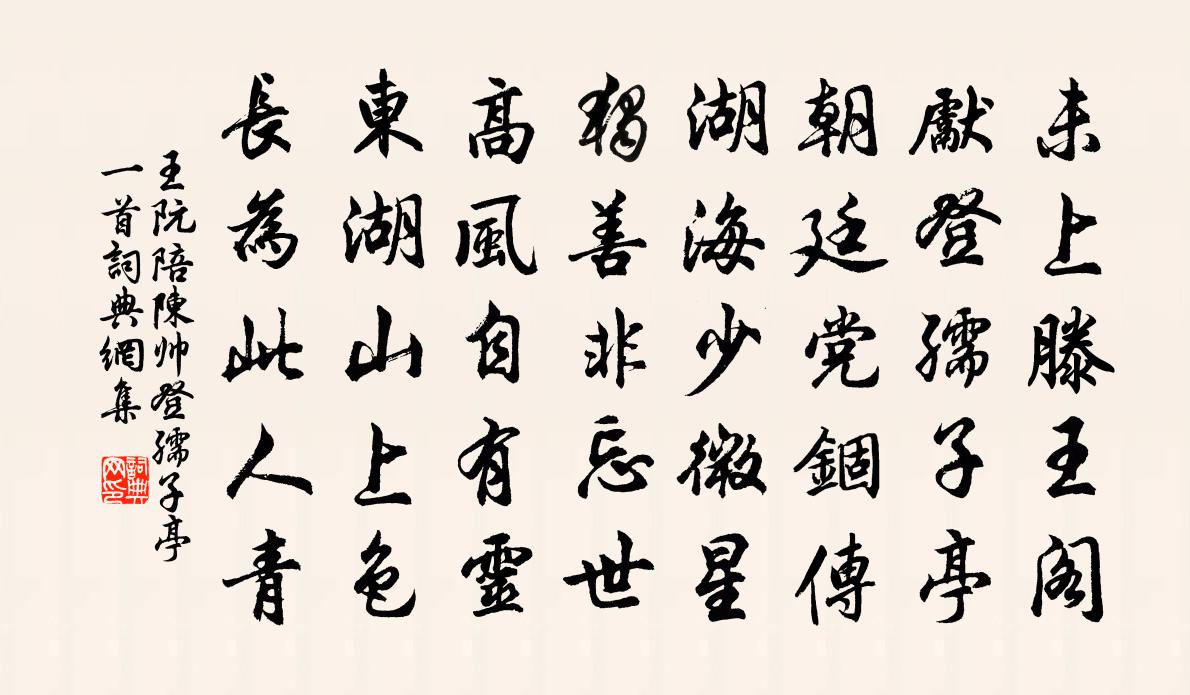 未上滕王阁
獻登孺子亭
朝廷党錮傳
湖海少微星
獨善非忘世
高風自有靈
東湖山上色
長為此人青
王阮陪陳帅登孺子亭
一首詞典網集
詞典网印